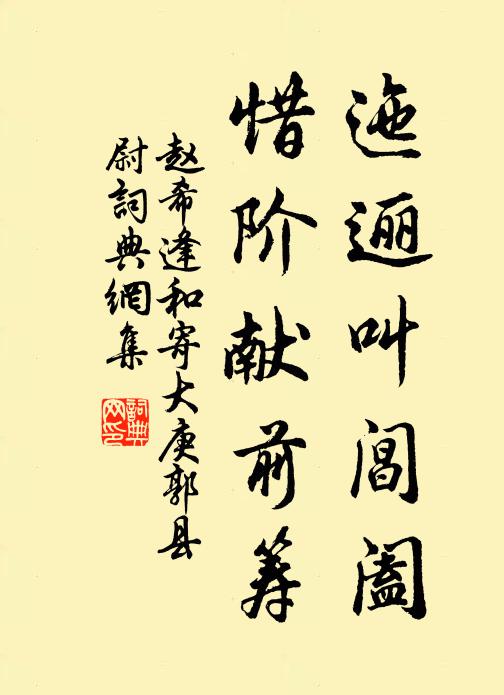 迤逦叫阊阖
惜阶献前筹
赵希逢和寄大庾郭县
尉词典网集
詞典网印